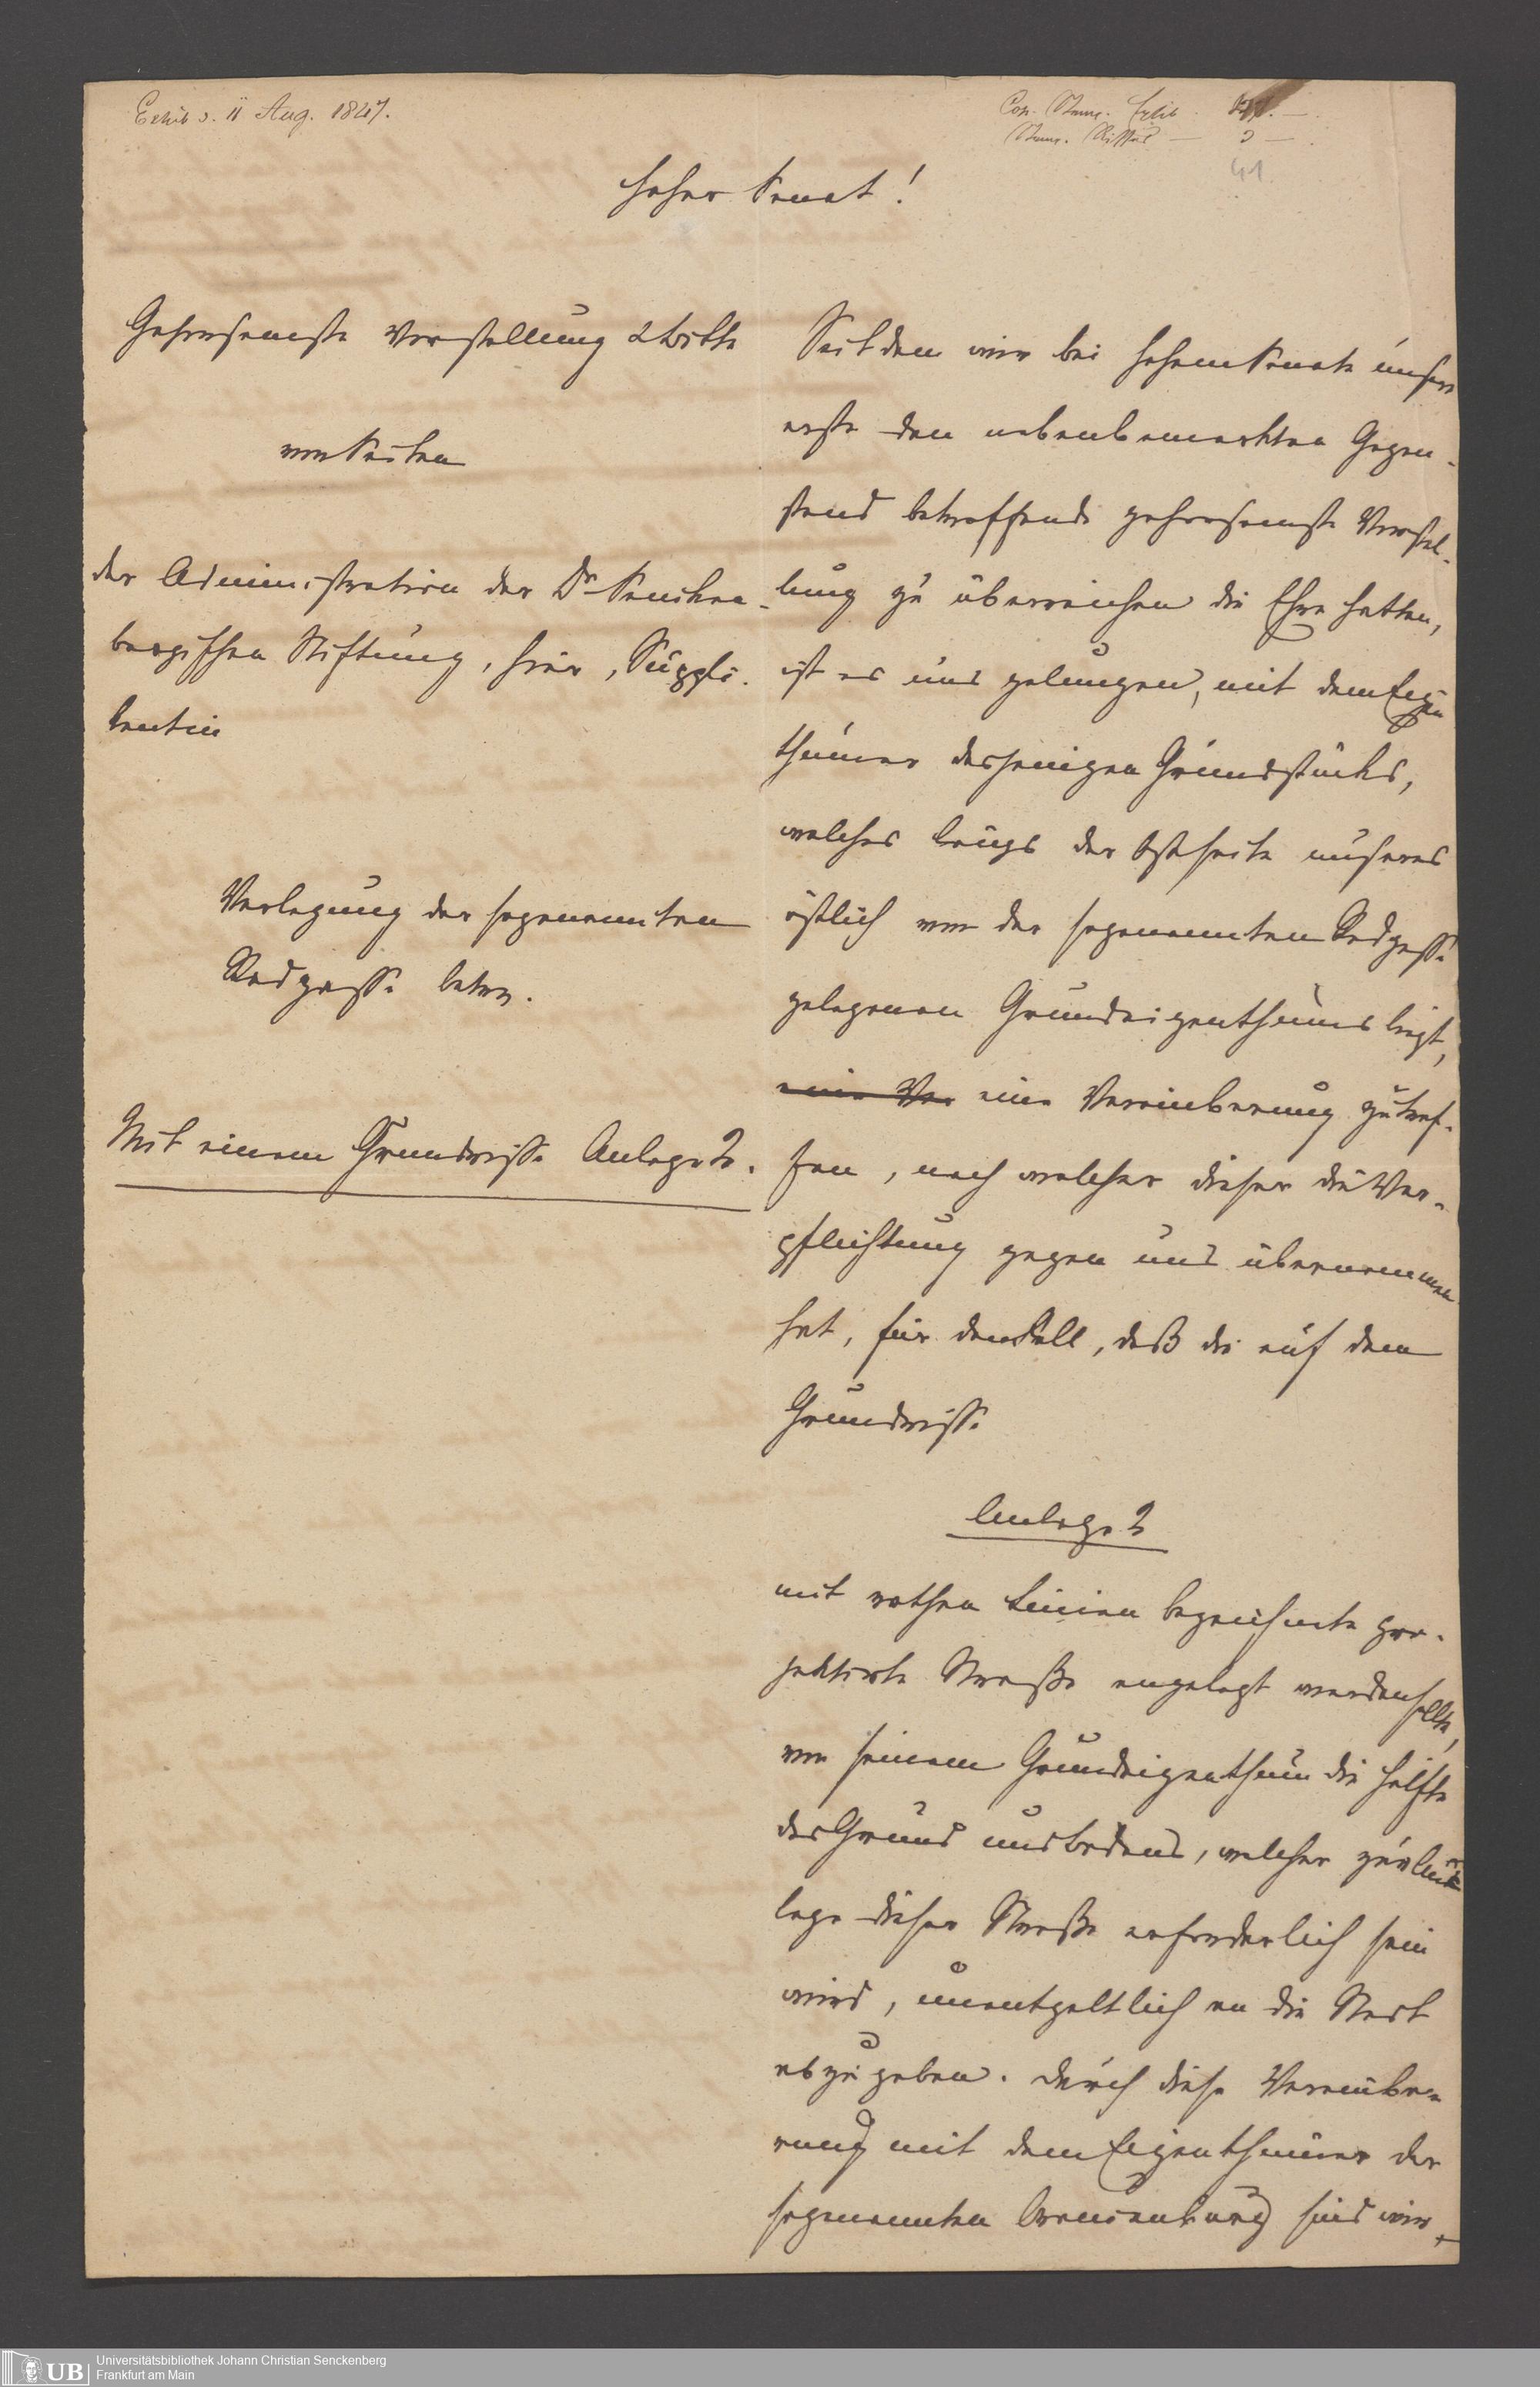 Exhib. d. 11 Aug. 1847.
Con. Stemp. Exhib.
Stemp. 2
41
Hoher Senat!
Gehorsamste Vorstellung & Bitte
von Seiten
der Administration der Dr Senkenbergischen
bergischen Stiftung, hier, Suppli-
kantin
Verlegung der sogenannten
Radgasse betr.
Mit einem Grundrisse Anlage 2.
Seitdem wir bei Hohem Senate unsere
erste den nebenbemerkten Gegen-
stand betreffende gehorsamste Vorstel-
lung zu überreichen die Ehre hatten,
ist es uns gelungen, mit dem Eigen
thümer desjenigen Grundstücks,
welches längs der Ostseite unseres
östlich von der sogenannten Radgasse
gelegenen Grundeigenthums liegt,
eine Ver eine Vereinbarung zu tref-
fen, nach welcher dieser die Ver-
pflichtung gegen uns übernommen
hat, für den Fall, daß die auf dem
Grundrisse
Anlage 2
mit rothen Linien bezeichnete pro-
jektirte Straße angelegt werden sollte,
von seinem Grundeigenthum die Hälfte
des Grund und Bodens, welcher zur An
lage dieser Straße erforderlich sein
wird, unentgeltlich an die Stadt
abzugeben. Durch diese Vereinba-
rung mit dem Eigenthümer der
sogenannten sind wir
UB
Universitätsbibliothek Johann Christian Senckenberg
Frankfurt am Main